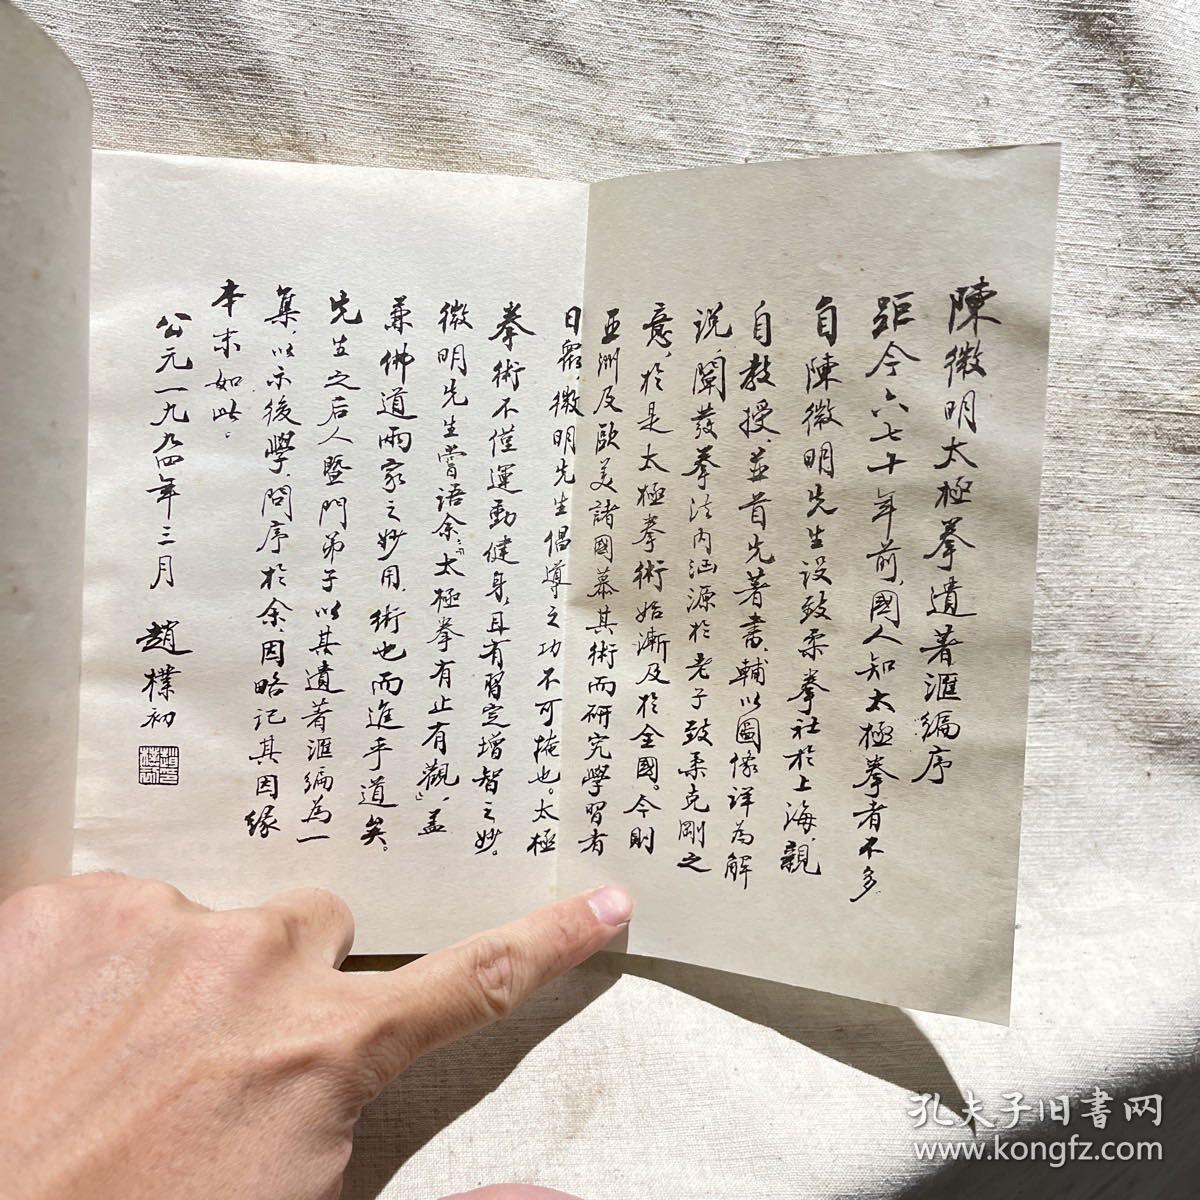 陳微明太極拳遺著滙編序
距今六七十年前，國人知太極拳者不多，
自陳微明先生设致柔拳社於上海，親
自教授，並首先著書，輔以圖像詳為解
说，闡發拳法内涵源於老子致柔克剛之
意，於是太極拳術始漸及於全國。今則
亞洲及歐美諸國慕其術而研究學習者
日衆，微明先生倡導之功不可掩也。太極
拳術不僅運動健身，且有習定增智之妙。
微明先生嘗语余：「太極拳有止有觀」，盖
兼佛道兩家之妙用，術也而進乎道矣。
先生之后人暨門弟子以其遺著滙編為一
集，以示後學，問序於余，因略记其因缘
本末如此。
公元一九九四年三月 趙樸初
孔夫子旧書网
www.kongfz.com